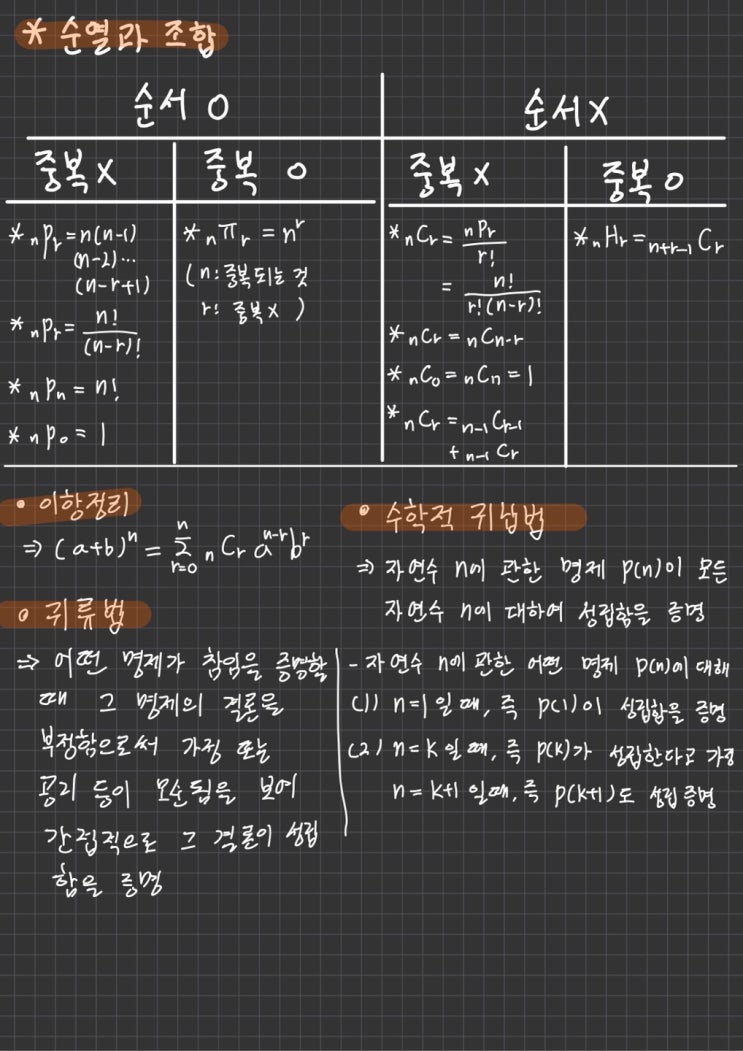 * 순열과 조합
순서 O
순서 X
중복 X
중복 O
중복 X
중복 O
* nPr = n(n-1)
(n-2)...
(n-r+1)
* nPr = n!/(n-r)!
* nPn = n!
* nP0 = 1
* nπr = n^r
(n: 중복되는 것
r: 중복 X )
* nCr = nPr/r!
= n!/r!(n-r)!
* nCr = nCn-r
* nC0 = nCn = 1
* nCr = n-1Cr-1
+ n-1Cr
* nHr = n+r-1Cr
• 이항정리
⇒ (a+b)^n = Σ_{r=0}^{n} nCr a^{n-r} b^r
• 귀류법
⇒ 어떤 명제가 참임을 증명할
때 그 명제의 결론을
부정함으로써 가정 또는
공리 등이 모순됨을 보여
간접적으로 그 결론이 성립
함을 증명
• 수학적 귀납법
⇒ 자연수 n에 관한 명제 p(n)이 모든
자연수 n에 대하여 성립함을 증명
- 자연수 n에 관한 어떤 명제 p(n)에 대해
(1) n=1 일 때, 즉 p(1)이 성립함을 증명
(2) n=k 일 때, 즉 p(k)가 성립한다고 가정
n=k+1 일때, 즉 p(k+1)도 성립 증명